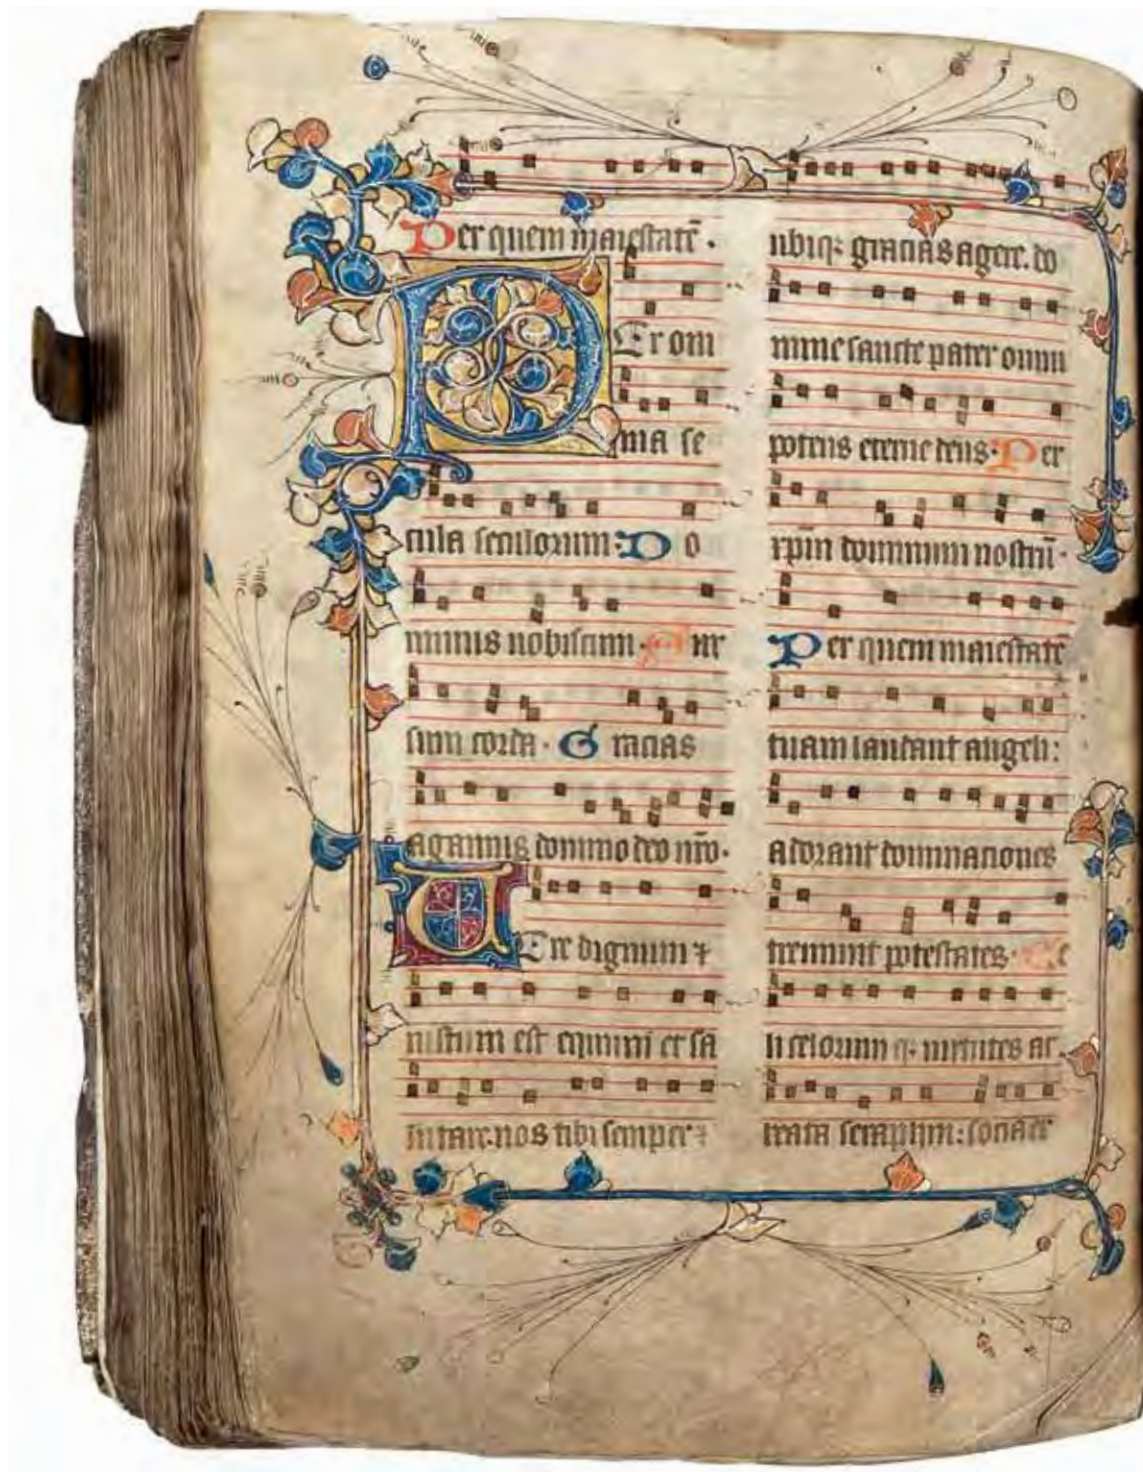 Per quem maiestatē.
Per om
nia se
cula seculorum: Do
minus nobiscum. Sur
sum corda. Gracias
agamus domino deo nr̄o.
Uere dignum ⁊
iustum est equum et sa
lutare: nos tibi semper ⁊
ubiqꝫ gracias agere. do
mine sancte pater omni
potens eterne deus: Per
xp̄m dominum nostrū.
Per quem maiestatē
tuam laudant angeli:
adorant dominationes
tremunt potestates. Ce
li celorum qꝫ uirtutes ac
beata seraphin: socia ex